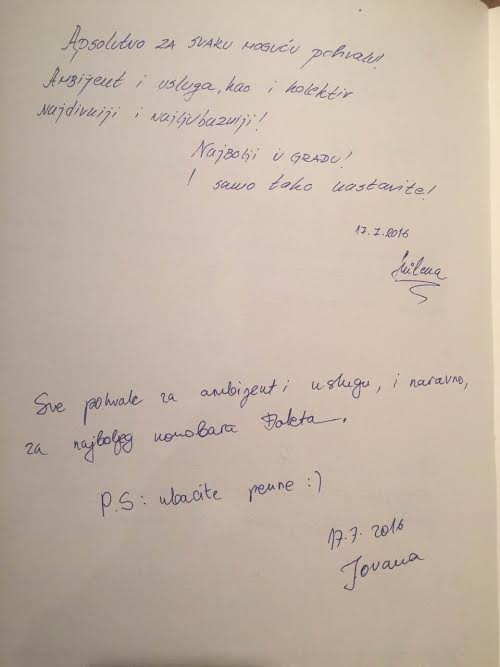 Apsolutno za svaku moguću pohvalu!
Ambijent i usluga, kao i kolektiv
najdivniji i najljubazniji!
Najbolji u gradu!
I samo tako nastavite!
17.7.2016
Milena
Sve pohvale za ambijent i uslugu, i naravno,
za najboljeg konobara Đoleta.
P.S: ubacite penne :)
17.7. 2016
Jovana